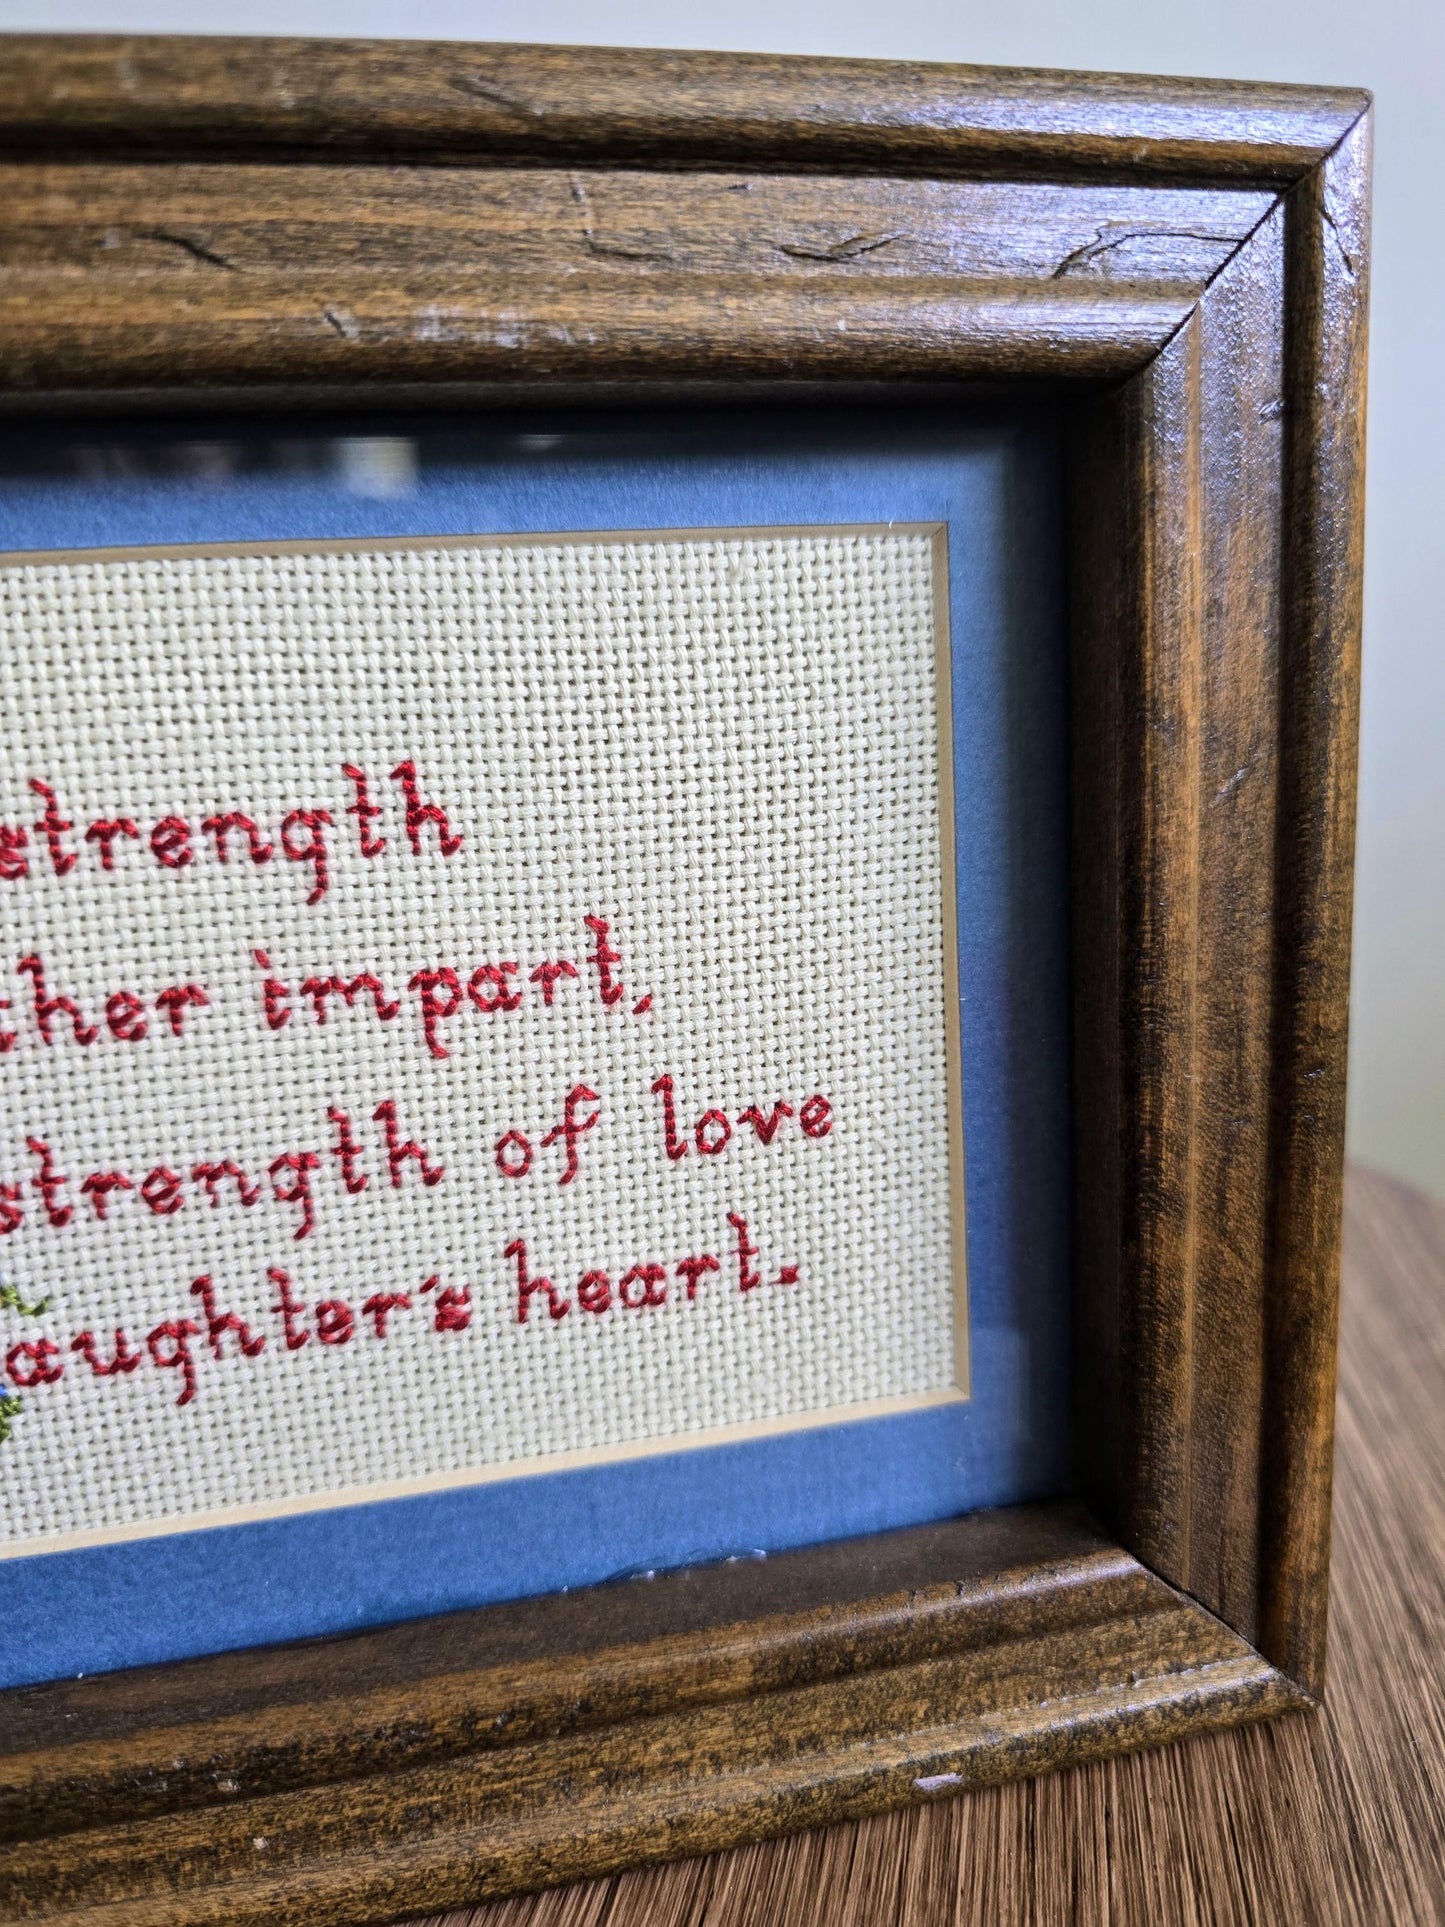 strength
ther impart,
strength of love
aughter's heart.